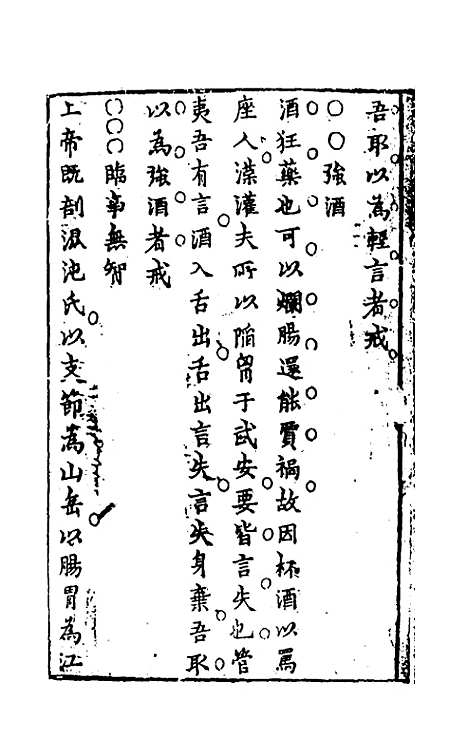 吾取以為輕言者戒
〇〇強酒
酒狂藥也可以爛腸還能賈禍故因杯酒以罵
座人渫灌夫所以陷胷于武安要皆言失也管
夷吾有言酒入舌出舌出言失言失身棄吾取
以為強酒者戒
〇〇〇臨事無智
上帝既剖混沌氏以支節為山岳以腸胃為江